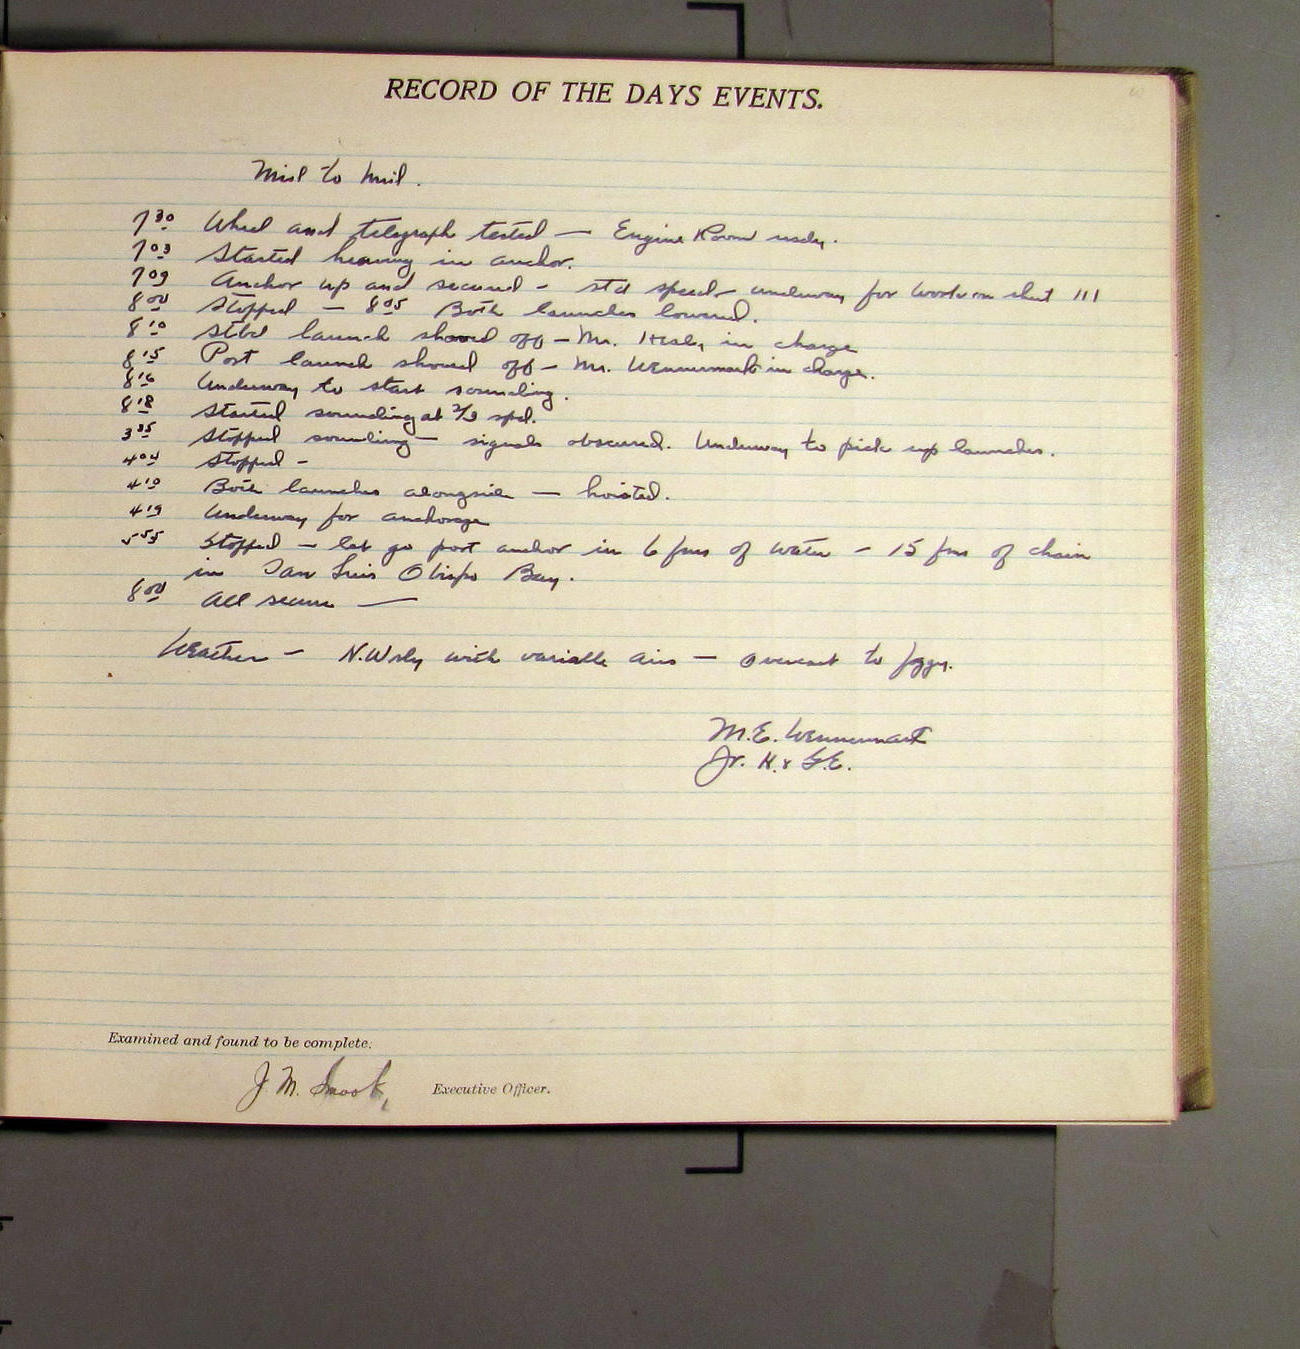 RECORD OF THE DAYS EVENTS.
Mid to Mid.
7 30 Wheel and telegraph tested — Engine Room ready.
7 03 Started heaving in anchor.
7 09 Anchor up and secured - std speed - underway for work on sheet 111
8 00 Stopped — 8 05 Both launches lowered.
8 10 Stbd launch shoved off — Mr. in charge
8 15 Port launch shoved off — Mr. Wennermark in charge.
8 16 Underway to start sounding.
8 18 Started sounding at 2/3 spd.
3 35 Stopped sounding — signals obscured. Underway to pick up launches.
4 04 Stopped -
4 10 Both launches alongside — hoisted.
4 19 Underway for anchorage
5 55 Stopped — let go port anchor in 6 fms of water - 15 fms of chain
in San Luis Obispo Bay.
8 00 All secure —
Weather — N.Wrly with variable airs — overcast to foggy.
M.E. Wennermark
Jr. H. & G.E.
Examined and found to be complete.
J. M. Smook, Executive Officer.